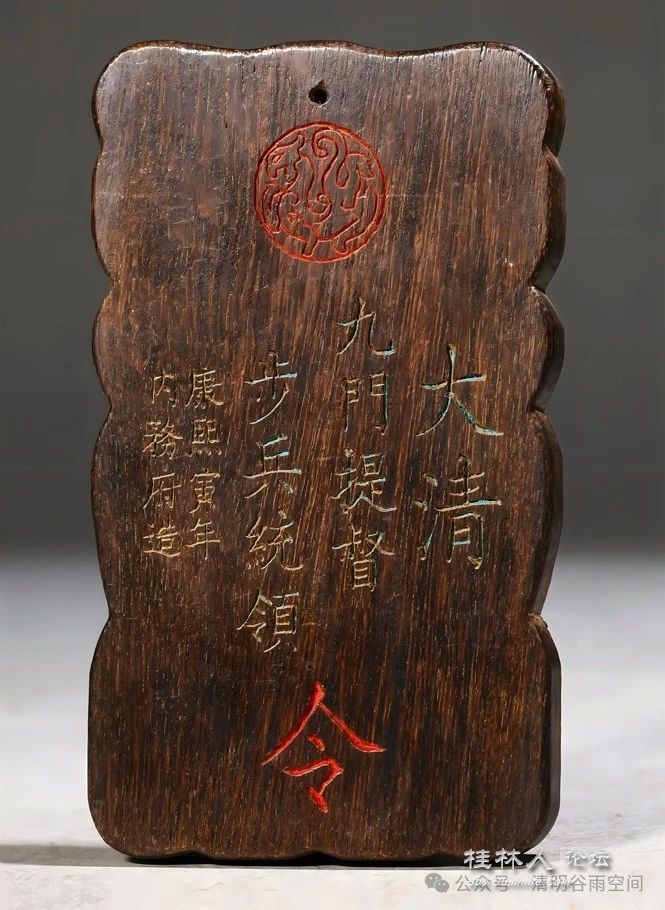 大清
九門提督
步兵統領
康熙寅年
内務府造
令
桂林人论坛
公众号 清明谷雨空间